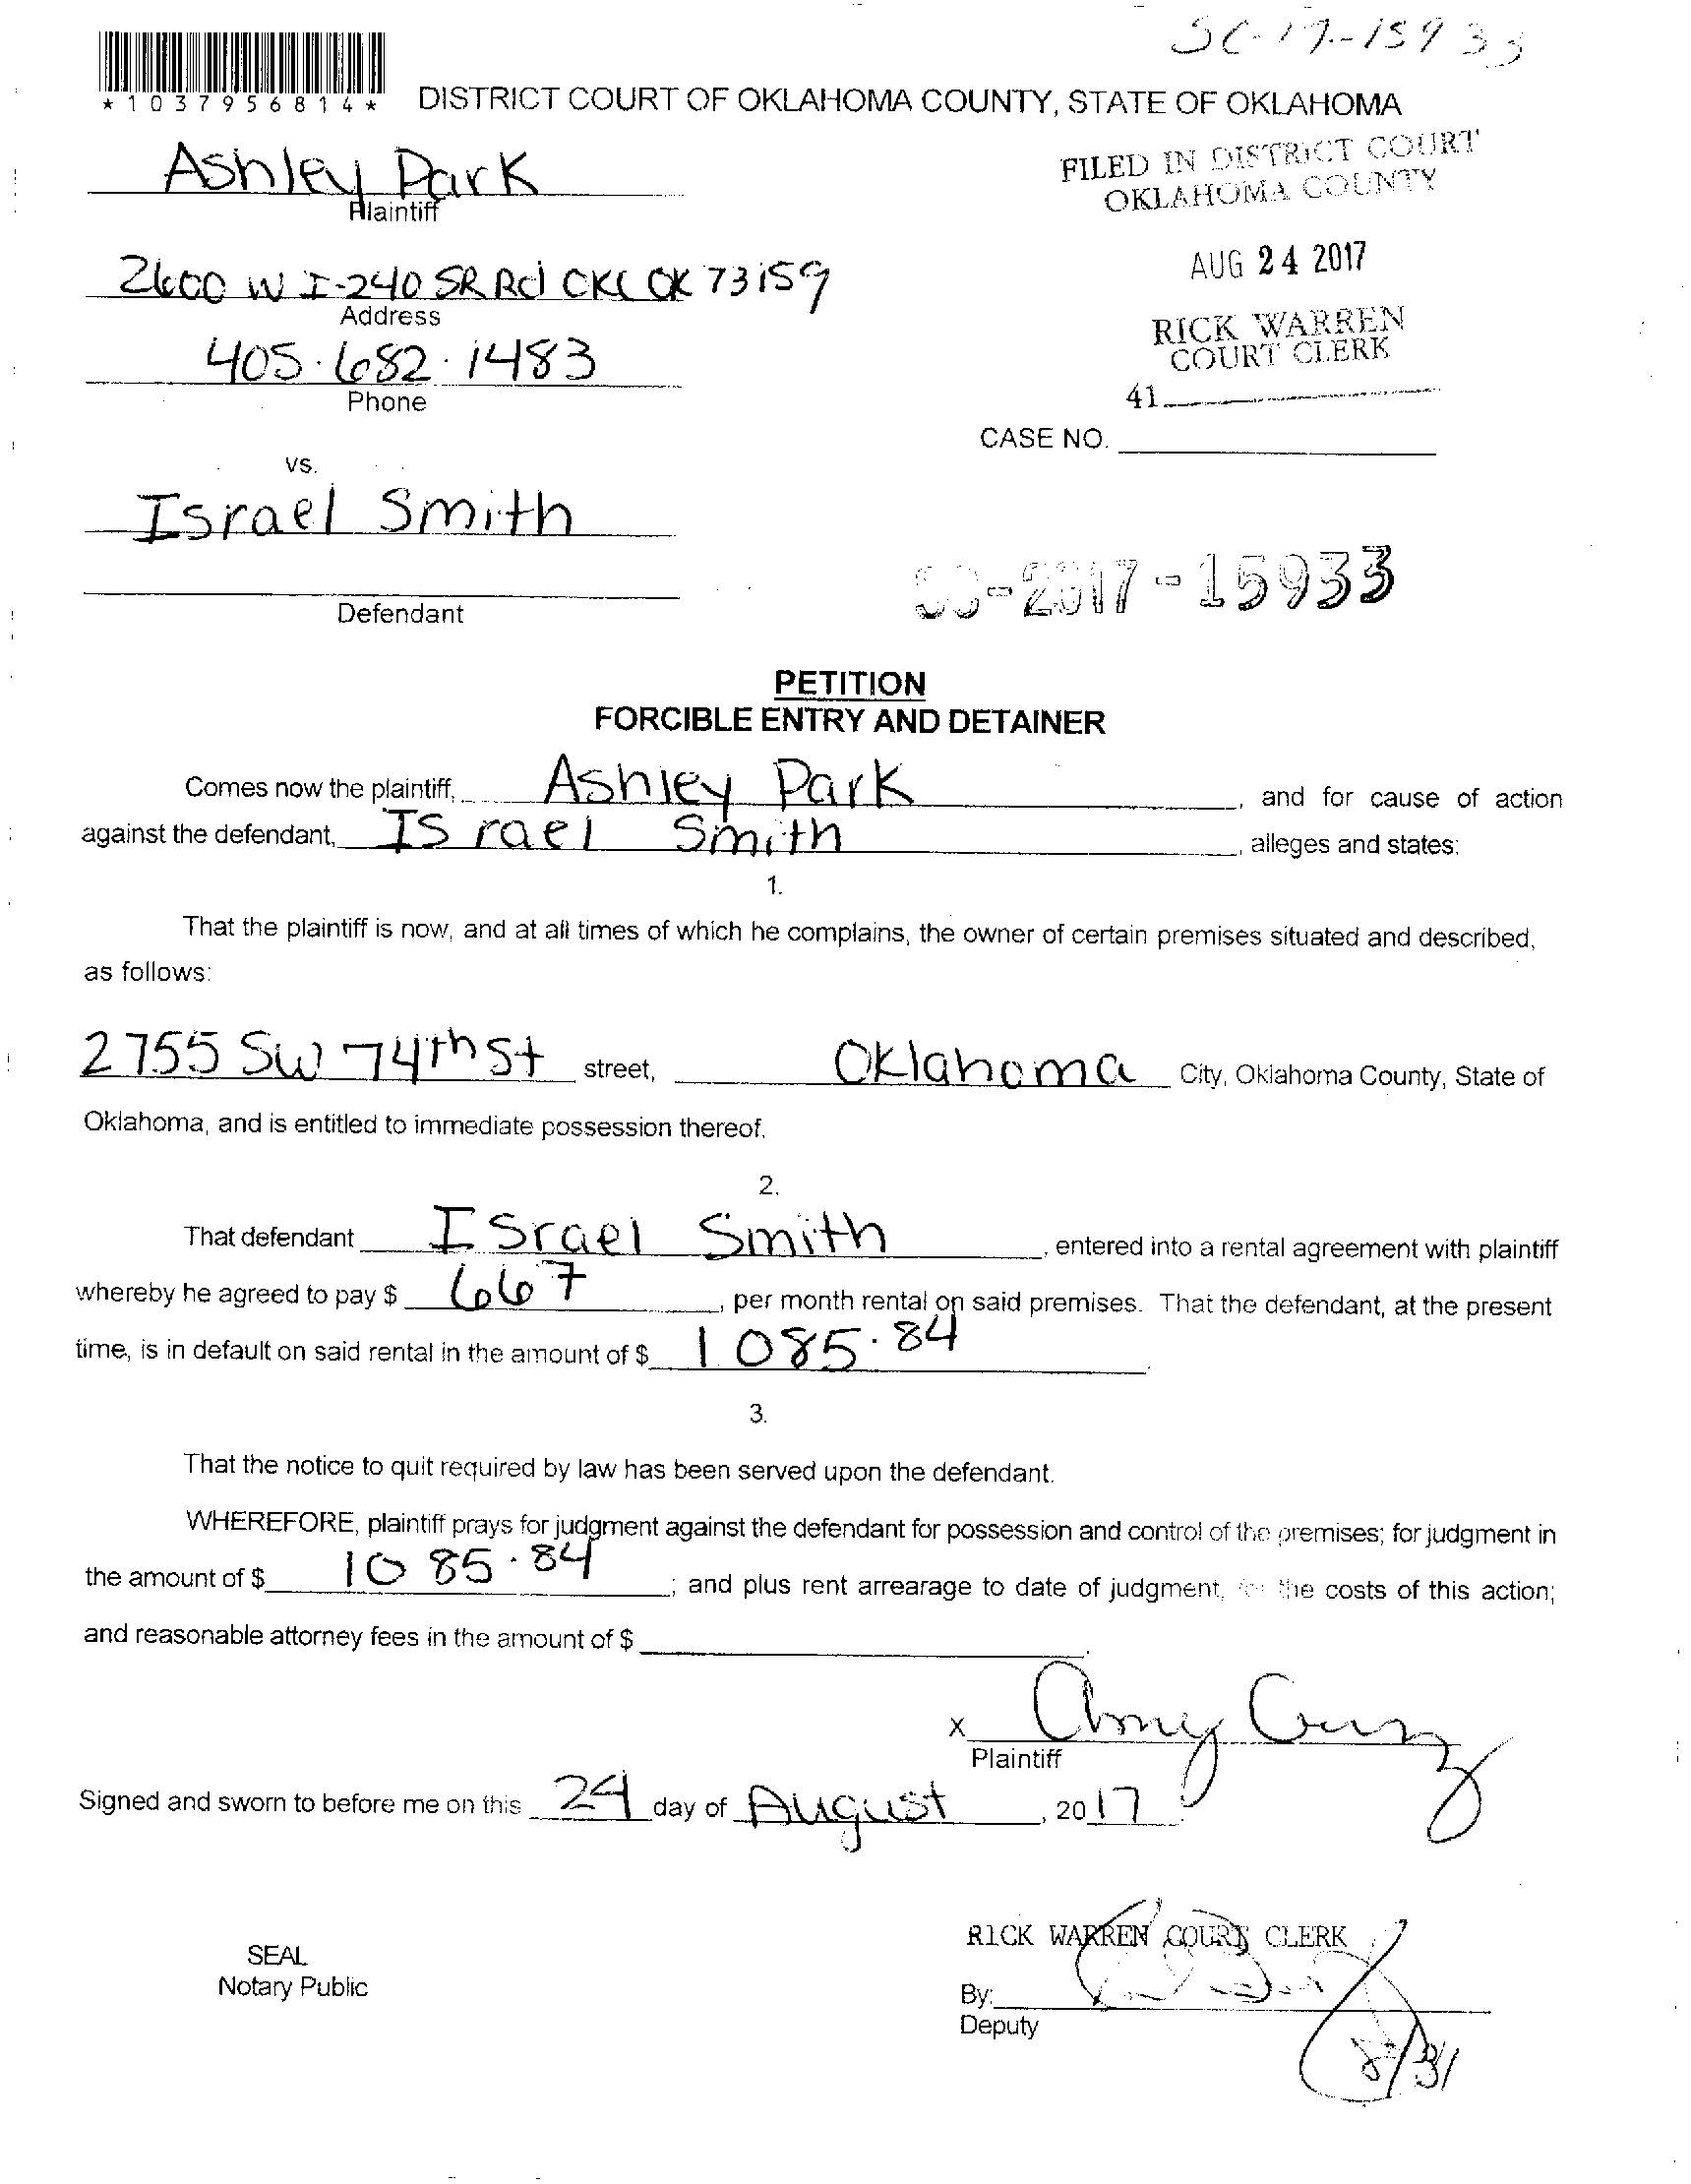 SC-17-15933
*1037956814*
DISTRICT COURT OF OKLAHOMA COUNTY, STATE OF OKLAHOMA
FILED IN DISTRICT COURT
OKLAHOMA COUNTY
Ashley Park
Plaintiff
AUG 24 2017
2600 W I-240 SR Rd OKC OK 73159
Address
RICK WARREN
COURT CLERK
405.682.1483
Phone
41
CASE NO.
vs.
Israel Smith
SC-2017-15933
Defendant
PETITION
FORCIBLE ENTRY AND DETAINER
Comes now the plaintiff, Ashley Park, and for cause of action
against the defendant, Israel Smith, alleges and states:
1.
That the plaintiff is now, and at all times of which he complains, the owner of certain premises situated and described,
as follows:
2755 SW 74th St street, Oklahoma City, Oklahoma County, State of
Oklahoma, and is entitled to immediate possession thereof.
2.
That defendant Israel Smith, entered into a rental agreement with plaintiff
whereby he agreed to pay $ 667, per month rental on said premises. That the defendant, at the present
time, is in default on said rental in the amount of $ 1085.84.
3.
That the notice to quit required by law has been served upon the defendant.
WHEREFORE, plaintiff prays for judgment against the defendant for possession and control of the premises; for judgment in
the amount of $ 1085.84; and plus rent arrearage to date of judgment, for the costs of this action;
and reasonable attorney fees in the amount of $.
X Amy Cruz
Plaintiff
Signed and sworn to before me on this 24 day of August, 2017
RICK WARREN COURT CLERK
SEAL
Notary Public
By:
Deputy
8/31